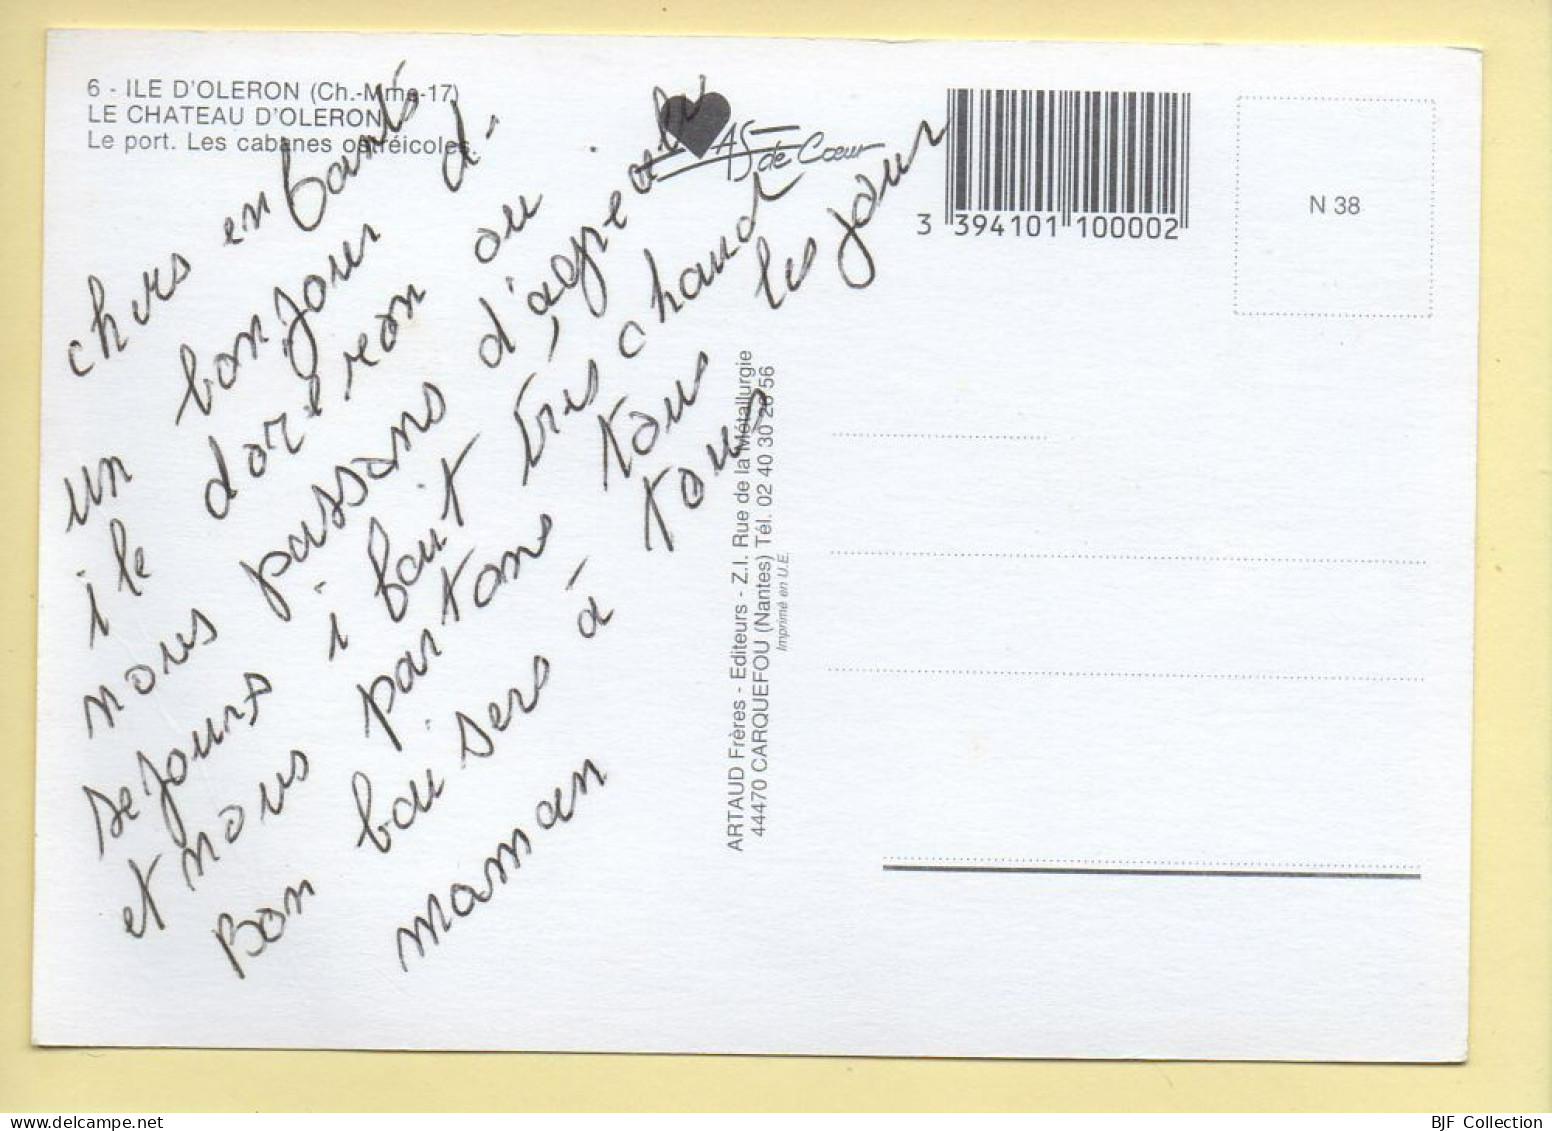 6 - ILE D'OLERON (Ch.-Mme-17)
LE CHATEAU D'OLERON
Le port. Les cabanes ostréicoles.
AS de Cœur
3 394101 100002
N 38
chers enfants
un bonjour d'
ile d'oreleron ou
nous passons d'agreable
sejours i fait très chaud
et nous partons tous les jour
Bon baisers à tous
maman
ARTAUD Frères - Editeurs - Z.I. Rue de la Métallurgie
44470 CARQUEFOU (Nantes) Tél. 02 40 30 26 56
Imprimé en U.E.
BJF Collection